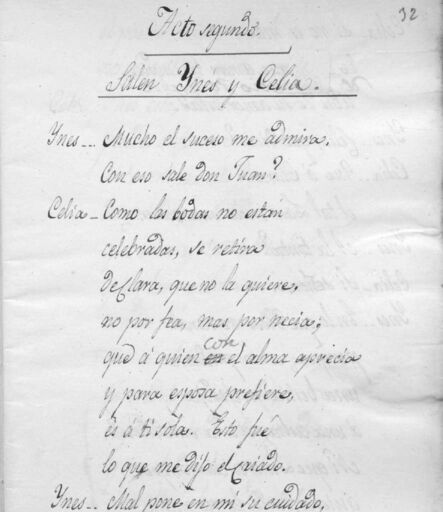 32
Acto segundo.
Salen Ynes y Celia.
Ynes-- Mucho el suceso me admira.
Con eso sale don Juan?
Celia- Como las bodas no estan
celebradas, se retira
de Clara, que no la quiere,
no por fea, mas por necia;
que á quien con el alma aprecia
y para esposa prefiere,
es á ti sola. Esto fué
lo que me dijo el criado.
Ynes- Mal pone en mi su cuidado,